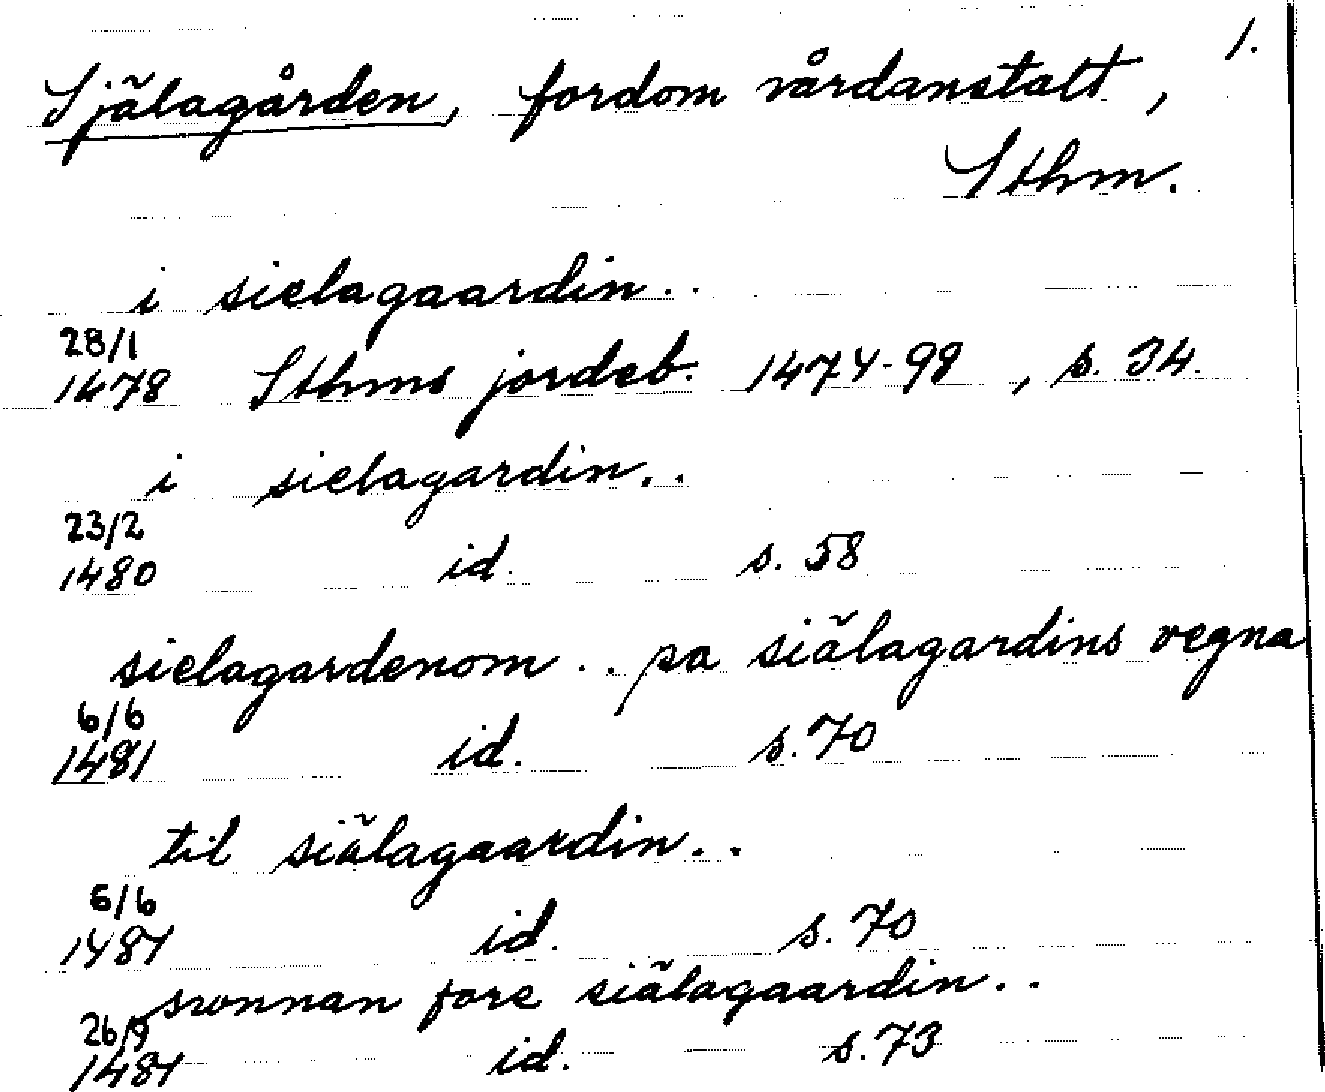 1.
Själagården, fordom vårdanstalt,
Sthm.
i sielagaardin..
28/1
1478 Sthms jordeb. 1474-98, s. 34.
i sielagardin..
23/2
1480 id. s. 58
sielagardenom .. pa siälagardins vegna
6/6
1481 id. s. 70
til siälagaardin..
6/6
1481 id. s. 70
sunnan fore siälagaardin..
26/9
1481 id. s. 73